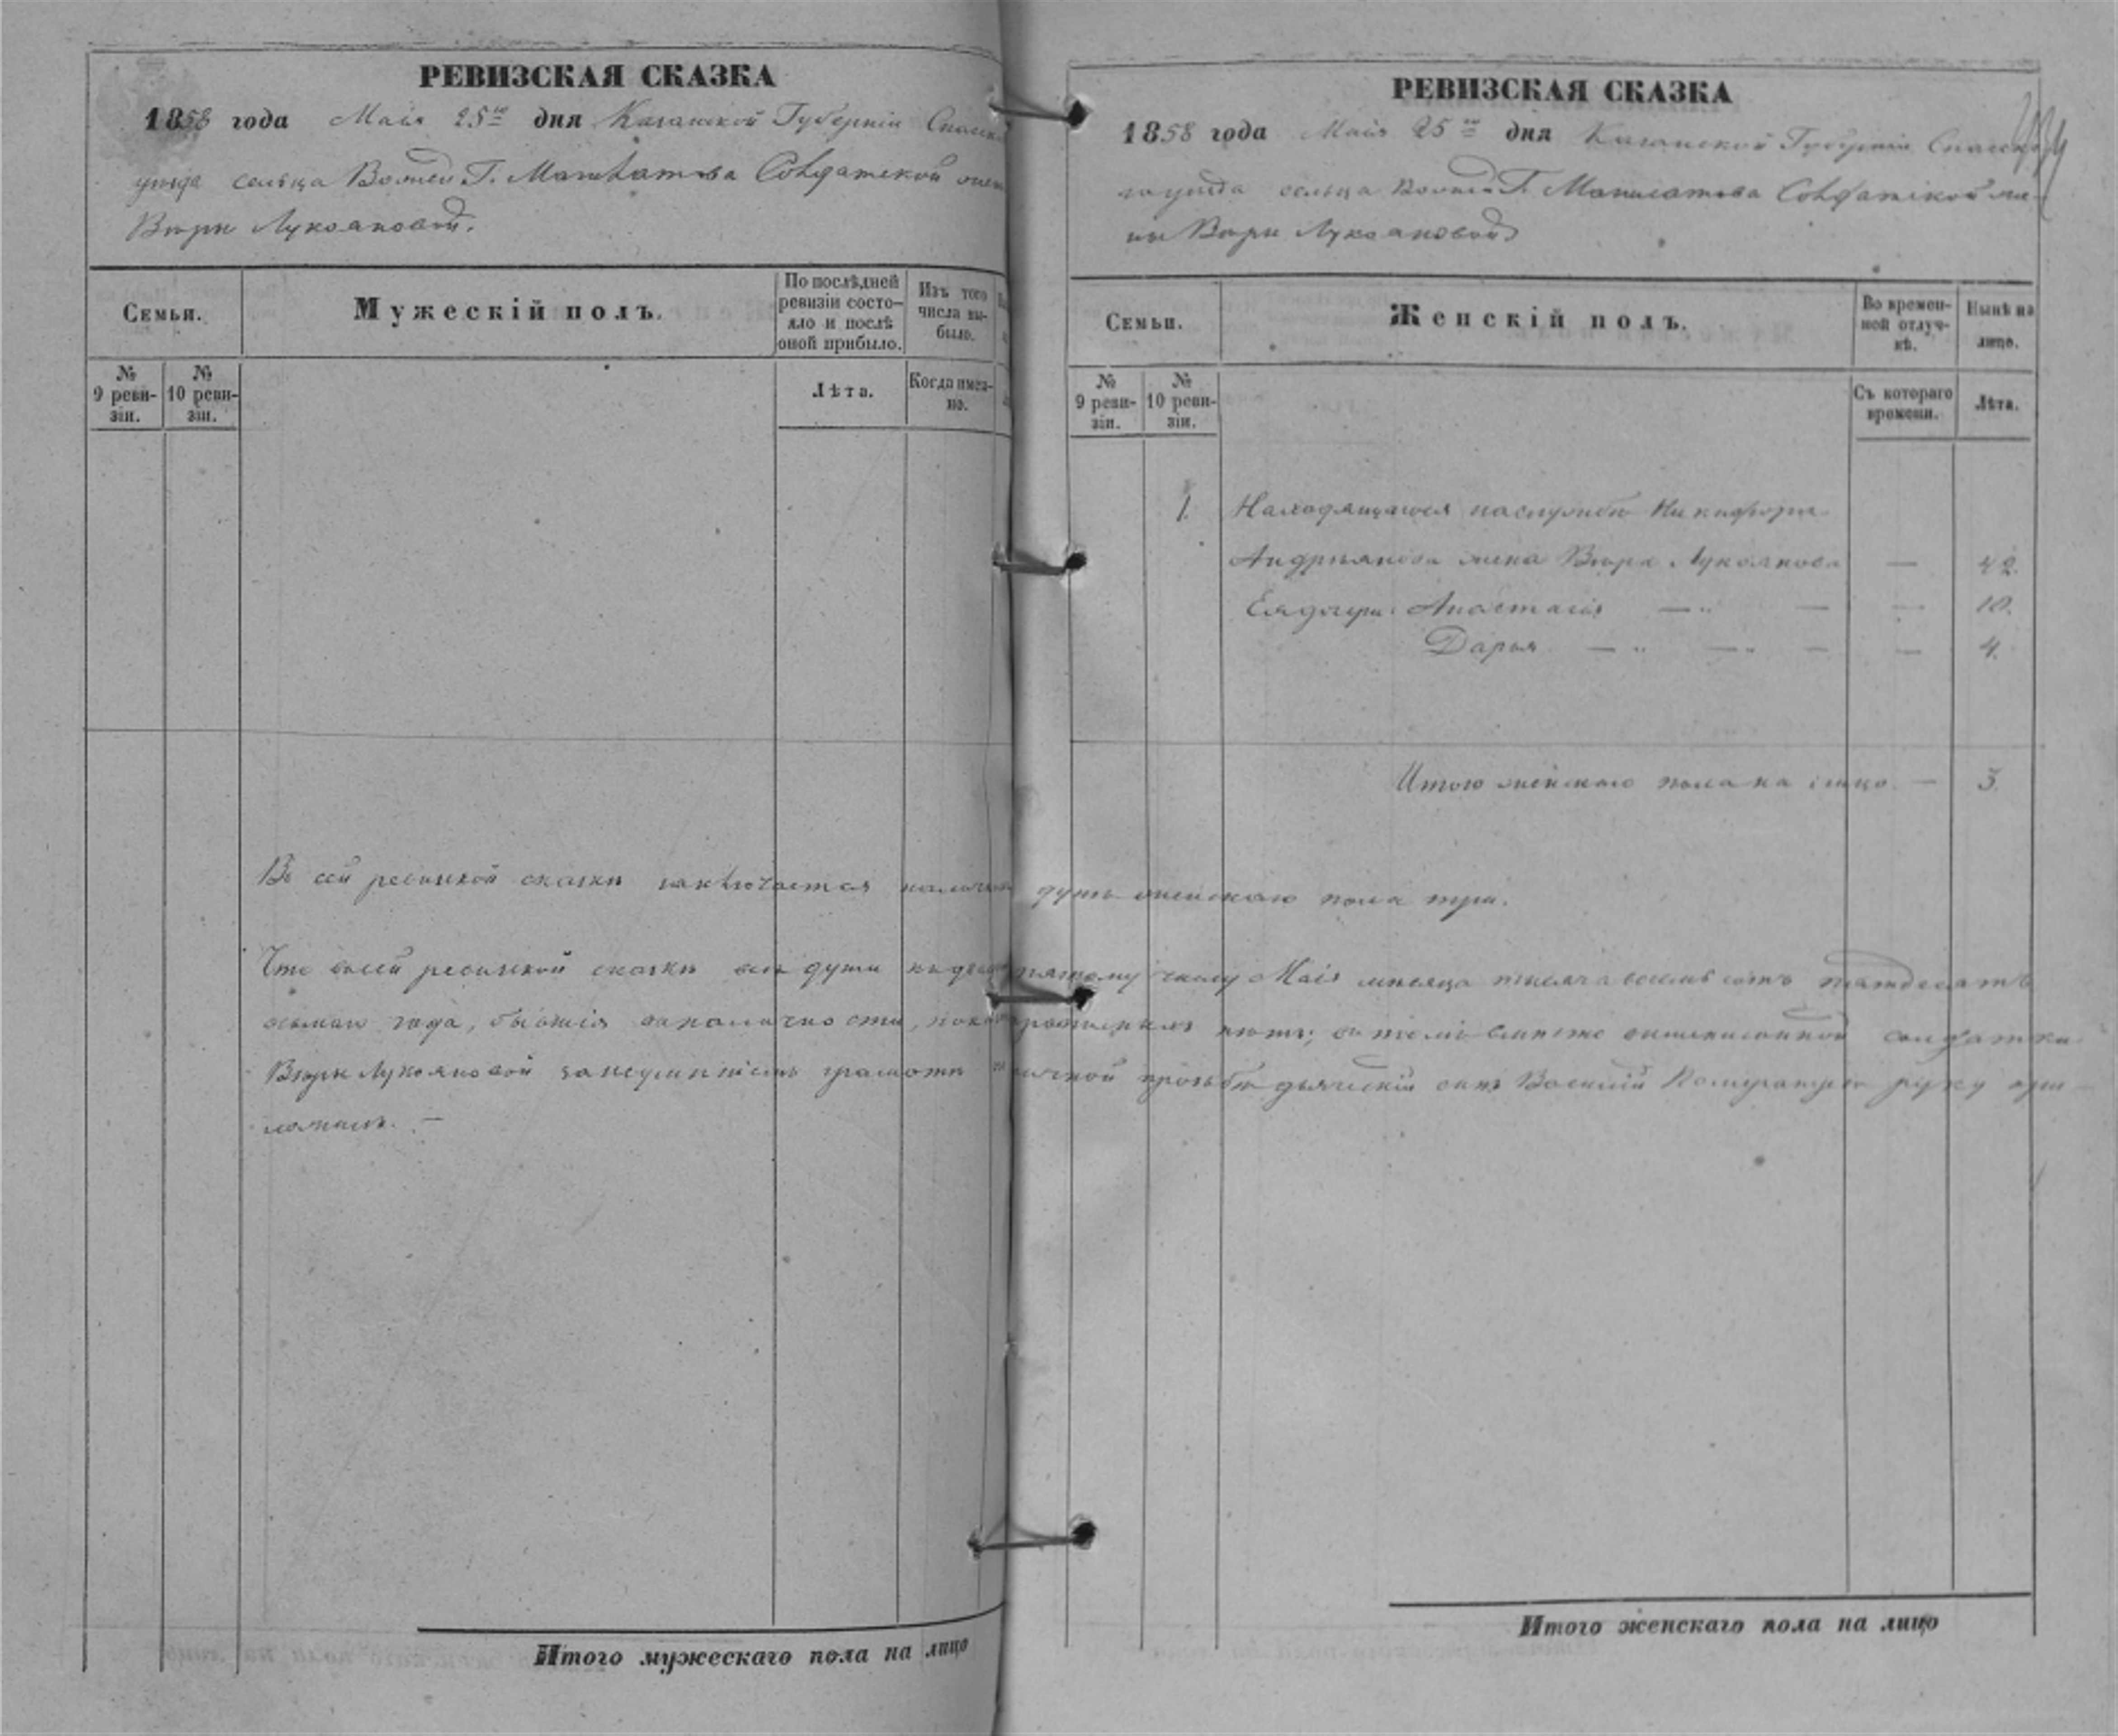 РЕВИЗСКАЯ СКАЗКА
1858 года Маія 25го дня Казанской Губерніи Спаска
уезда сельца Г. Солдатской жен
Веры Лукояновой.
Семьи.
Мужескій полъ.
По послѣдней ревизіи состо-
яло и послѣ
оной прибыло.
Изъ того
числа вы-
было.
№
9 реви-
зіи.
№
10 реви-
зіи.
Лѣта.
Когда имен-
но.
Въ сей ревизской сказки заключается налично душъ женскаго пола три.
Что въ сей ревизской сказки все души къ двадцать пятому числу Маія месяца тысяча восемь сотъ пятдесятъ
осьмаго года, бывшія въ наличности, показаны нетъ; въ томъ вместо солдатки
Веры Лукояновой за неуменіемъ грамоты личной прозьбе сынъ Василій руку при
ложилъ. —
Итого мужескаго пола на лицо
РЕВИЗСКАЯ СКАЗКА
1858 года Маія 25го дня Казанской Губерніи Спаска
го уезда сельца Г. Солдатской же-
ны Веры Лукояновой
Семьи.
Женскій полъ.
Во времен-
ной отлуч-
кѣ.
Нынѣ на
лицо.
№
9 реви-
зіи.
№
10 реви-
зіи.
Съ котораго
времени.
Лѣта.
1. Находящагося на службе Никифора
Андриянова жена Вера Лукоянова — 42.
Ея дочери: Анастасія — — — 10.
Дарья — — — — 4.
Итого женскаго пола на лицо — 3.
Итого женскаго пола на лицо